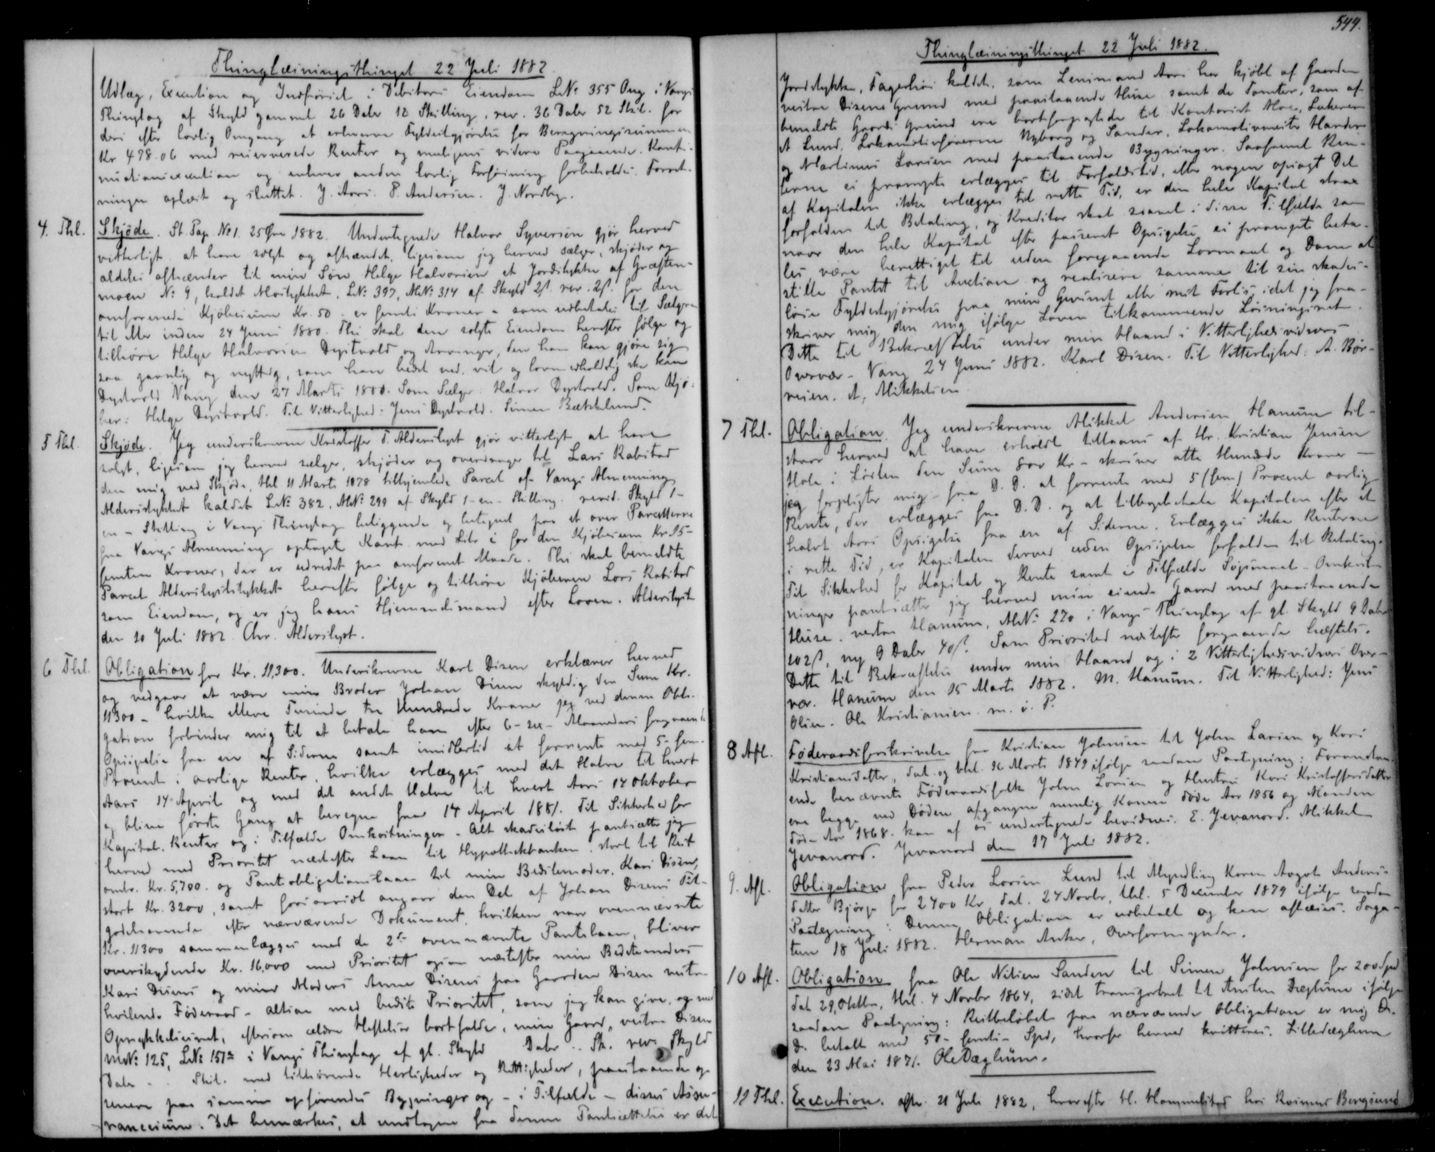 Thinglæsningsthinget 22 Juli 1882
Udlæg, Execution og Indførsel i Debitors Eiendom LNo 355 Ong i Vangs
Thinglag af Skyld gammel 26 Daler 12 Skilling, rev. 36 Daler 52 Skil. for
deri efter lovlig Omgang at erhverve Fyldestgjørelse for Beregningssummen
Kr 478.06 med reserverede Renter og muligens videre Paagaaende. Kont-
nuationsexecution og enhver anden lovlig Forføining forbeholdes. Forret-
ningen oplæst og sluttet. J. Aars. P. Andersen. J. Nordby.
4. Thl. Skjøde. St. Pap No 1. 25 Øre 1882. Undertegnede Halvor Syversen gjør herved
vitterligt at have solgt og afhændet, ligesom jeg herved sælger, skjøder og
aldeles afhænder til min Søn Helge Halvorsen et Jordstykke af Græften-
moen No 9, kaldet Mostykket, LNo 397, MNo 314 af Skyld 2ß rev. 2ß. for den
omforenede Kjøbesum Kr. 50 - er femti Kroner - som udbetales til Sælgeren
til eller inden 24 Juni 1880. Thi skal den solgte Eiendom herefter følge og
tilhøre Helge Halvorsen Dystvold og Arvinger, den han kan gjøre sig
saa gavnlig og nyttig, som han bedst ved, vil og loven-
Dystvold Vang den 24 Marts 1880. Som Sælger: Halvor Dystvold. Som Kjø-
ber: Helge Dystvold. Til Vitterlighed: Jens Dystvold. Simen Bækkelund.
5 Thl. Skjøde. Jeg underskrevne Kristoffer T. Alderslyst gjør vitterligt at have
solgt, ligesom jeg herved sælger, skjøder og overdrager til Lars Rabstad
den mig ved Skjøde, thl 11 Marts 1878 tilhjemlede Parcel af Vangs Almenning
Alderslystykket kaldet LNo 382, MNo 299 af Skyld 1-en- Skilling. revid. Skyld 1-
en - Skilling i Vangs Thinglag beliggende og betegnet paa et over Parcellerne
fra Vangs Almenning optaget Kart med Litr i for den Kjøbesum Kr. 15-
femten Kroner, der er udredet paa omforenet Maade. Thi skal bemeldte
Parcel Alderslyststykket herefter følge og tilhøre Kjøberen Lars Rabstad
som Eiendom, og er jeg hans Hjemmelsmand efter Loven. Alderslyst
den 20 Juli 1882. Chr. Alderslyst.
6 Thl. Obligation for Kr. 11,300. Underskrevne Karl Disen erklærer herved
og vedgaar at være min Broder Johan Disen skyldig den Sum Kr.
11300 - hvilke elleve Tusinde tre Hundrede Kroner jeg ved denne Obli-
gation forbinder mig til at betale ham efter 6-sex- Maaneders foregaaende
Opsigelse fra en af Siderne samt imidlertid at forrente med 5-fem-
Procent i aarlige Renter, hvilke erlægges med det Halve til hvert
Aars 14 April og med det andet Halve til hvert Aars 14 Oktober
og blive første Gang at beregne fra 14 April 1881. Til Sikkerhed for
Kapital. Renter og i Tilfælde Omkostninger - Alt skadesløst pantsætter jeg
herved med Prioritet nædefter Laan til Hypothekbanken stort til Rest
omtr. Kr. 5,700. og Pantobligationslaan til min Bedstemoder Kari Disen,
stort Kr. 3200, samt forsaavidt angaar den Del af Johan Disens Til-
godehavende efter nærværende Dokument, hvilken naar ovennævnte
Kr. 11300 sammenlægges med de 2de ovennævnte Pantelaan, bliver
overskydende Kr. 16,000 med Prioritet ogsaa nædefter min Bedstemoders
Kari Disens og min Moders Anna Disens paa Gaarden Disen vestre
hvilende Føderaad - altsaa med bedste Prioritet, som jeg kan give, og med
Opryksksret, eftersom ældre Heftelser bortfalde, min Gaard, vestre Disen
MNo 125, LNo 151a i Vangs Thinglag af gl. Skyld Daler .. Sk. rev. Skyld
Daler - . Skil. med tilhørende Herligheder og Rettigheder, paastaaende og
senere paa samme opførendes Bygninger og - i Tilfælde - disses Assu-
rancesum. Det bemærkes, at undtagen fra denne Pantsættelse er det
544.
Thinglæsningsthinget 22 Juli 1882.
Jordstykke, Fagerlien kaldet, som Lensmand Aars har kjøbt af Gaarden
vestre Disens Grund med paastaaende Huse samt de Tomter, som af
bemeldte Gaards Grund ere bortforpagtede til Kontorist Moe,
A Lund, Lokomotivførerne Nyborg og Sander, Lokomotivmester Harder
og Martinus Larsen med paastaaende Bygninger. Saafremt Ren-
terne ei prompte erlægges til Forfaldstid, eller nogen opsagt Del
af Kapitalen ikke erlægges til rette Tid, er den hele Kapital strax
forfalden til Betaling, og Kreditor skal saavel i disse Tilfælde som
naar den hele Kapital efter passeret Opsigelse ei prompte beta-
les være berettiget til uden foregaaende Lovmaal og Dom at
stille Pantet til Auction og realisere samme til sin skades-
løse Fyldestgjørelse paa min Gevinst eller mit Forlis, idet jeg fra-
skriver mig den mig ifølge Loven tilkommende Løsningsret.
Dette til Bekræftelse under min Haand i Vitterlighedsvidners
Overvær - Vang 24 Juni 1882. Karl Disen. Til Vitterlighed: A. Rør-
veien. A, Mikkelsen
7 Thl. Obligation. Jeg underskrevne Mikkel Andersen Hanum til-
staar herved at have erholdt tillaans af Hr. Kristian Jensen
Hole i Løiten den Sum 800 Kr - skriver otte Hundrede Kroner -
jeg forpligter mig fra D. D. at forrente med 5 (fem) Procent aarlig
Rente, der erlægges fra D. D. og at tilbagebetale Kapitalen efter et
halvt Aars Opsigelse fra en af Siderne. Erlægges ikke Renterne
i rette Tid, er Kapitalen derved uden Opsigelse forfalden til Betaling.
Til Sikkerhed for Kapital og Rente samt i Tilfælde Søgsmaal - Omkost-
ninger pantsætter jeg herved min eiende Gaard med paastaaende
Huse. vestre Hanum, MNo 220 i Vangs Thinglag af gl. Skyld 9 Daler
102ß, ny 9 Daler 40ß. Som Prioritet næstefter foregaaende Hæftels.
Dette til Bekræftelse under min Haand og i 2 Vitterlighedsvidners Over-
vær. Hanum den 15 Marts 1882. M. Hanum. Til Vitterlighed: Jens
Olsen. Ole Kristiansen. m. i. P.
8 Afl. Føderaadsforskrivelse fra Kristian Johnsen til John Larsen og Kari
Kristiansdatter, dat. og thl. 16 Marts 1849 ifølge saadan Paategning:
ende benævnte Føderaadsfolk John Larsen og Hustru Kari Kristoffersdatter
ere begge ved Døden afgangne nemlig Konen døde Aar 1856 og Manden
døde Aar 1868. kan af os undertegnede bevidnes. E. Jevanord. Mikkel
Jevanord. Jevanord den 17 Juli 1882.
9. Afl. Obligation fra Peder Larsen Lund til Myndling Karen Aagot Anders-
datter Bjørge for 2400 Kr. dat. 24 Novbr, thl. 5 December 1879 ifølge saadan
Paategning: Denne Obligation er udbetalt og kan aflæses. Saga-
tun 18 Juli 1882. Herman Anker, Overformynder.
10 Afl. Obligation fra Ole Nilsen Sanden til Simen Johnsen for 200 Spd
dat 29, Oktbr, thl. 4 Novbr 1864, sidst transporteret til Anders Dæglum ifølge
saadan Paategning: Restbeløbet paa nærværende Obligation er mig D.
D. betalt med 50 - femti - Spd, hvorfor herved kvitteres. Lilledæglum
den 23 Mai 1871. Ole Dæglum.
11 Thl. Execution. afh. 21 Juli 1882, hvorefter H. Hammelstad hos Rasmus Bergsund